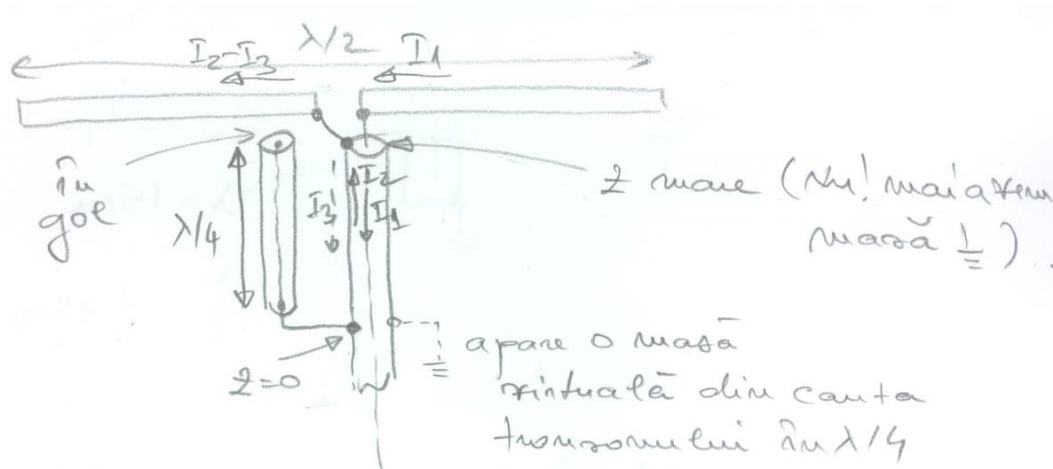 λ/2
I2-I3
I1
în
gol
λ/4
I3
I2
I1
Z mare (Nu! mai avem
masă ⏚).
Z=0
apare o masă
virtuală din cauza
transonului în λ/4